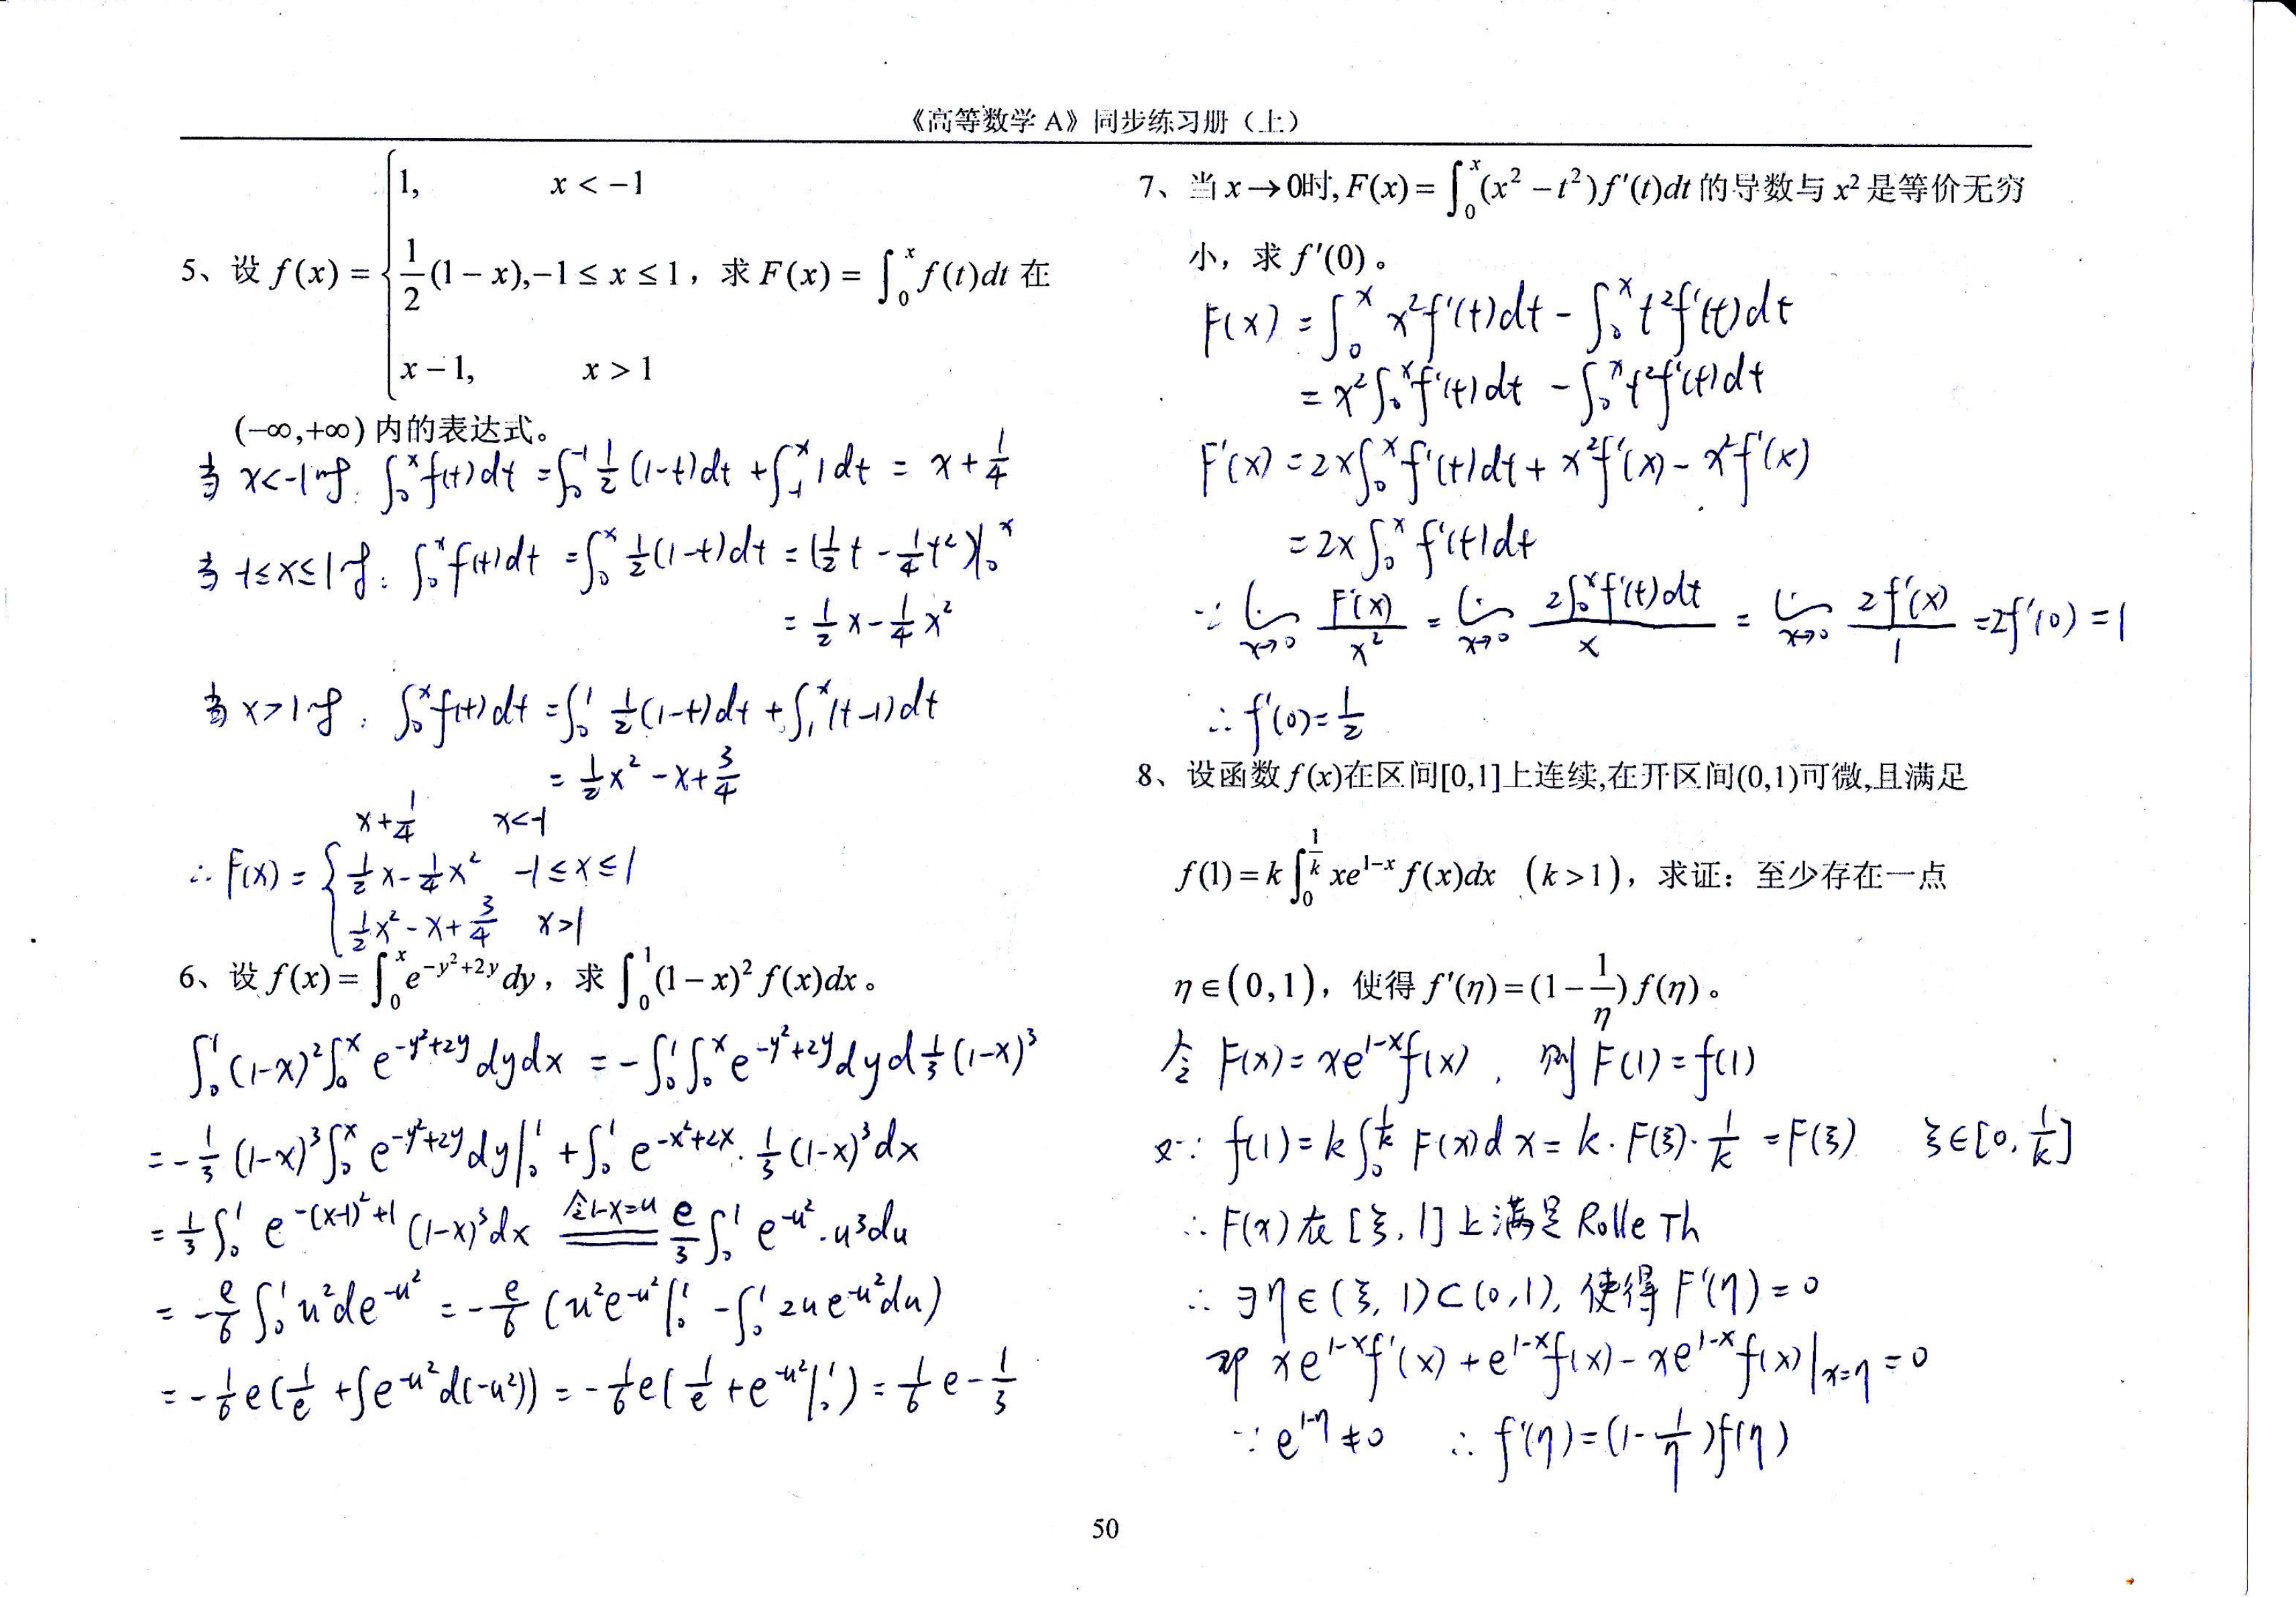 《高等数学 A》同步练习册（上）
5、设 f(x) = { 1, x < −1
1/2(1 − x), −1 ≤ x ≤ 1，求 F(x) = ∫₀ˣ f(t)dt 在
x − 1, x > 1
(−∞,+∞) 内的表达式。
当 x<-1时: ∫₀ˣ f(t)dt = ∫₀⁻¹ 1/2 (1-t)dt + ∫₋₁ˣ 1dt = x + 1/4
当 -1≤x≤1时: ∫₀ˣ f(t)dt = ∫₀ˣ 1/2(1-t)dt = (1/2 t - 1/4 t²)|₀ˣ
= 1/2 x - 1/4 x²
当 x>1时: ∫₀ˣ f(t)dt = ∫₀¹ 1/2(1-t)dt + ∫₁ˣ (t-1)dt
= 1/2 x² - x + 3/4
x + 1/4 x<-1
∴ F(x) = { 1/2 x - 1/4 x² -1≤x≤1
1/2 x² - x + 3/4 x>1
6、设 f(x) = ∫₀ˣ e^(−y²+2y) dy，求 ∫₀¹ (1 − x)² f(x)dx。
∫₀¹ (1-x)² ∫₀ˣ e^(-y²+2y) dydx = -∫₀¹ ∫₀ˣ e^(-y²+2y) dy d 1/3 (1-x)³
= -1/3 (1-x)³ ∫₀ˣ e^(-y²+2y) dy|₀¹ + ∫₀¹ e^(-x²+2x) · 1/3 (1-x)³ dx
= 1/3 ∫₀¹ e^(-(x-1)²+1) (1-x)³ dx 令1-x=u = e/3 ∫₀¹ e^(-u²) · u³ du
= -e/6 ∫₀¹ u² de^(-u²) = -e/6 (u² e^(-u²)|₀¹ - ∫₀¹ 2u e^(-u²) du)
= -1/6 e (1/e + ∫ e^(-u²) d(-u²)) = -1/6 e (1/e + e^(-u²)|₀¹) = 1/6 e - 1/3
7、当 x → 0时, F(x) = ∫₀ˣ (x² − t²) f′(t)dt 的导数与 x² 是等价无穷
小，求 f′(0)。
F(x) = ∫₀ˣ x² f′(t)dt - ∫₀ˣ t² f′(t)dt
= x² ∫₀ˣ f′(t)dt - ∫₀ˣ t² f′(t)dt
F′(x) = 2x ∫₀ˣ f′(t)dt + x² f′(x) - x² f′(x)
= 2x ∫₀ˣ f′(t)dt
∵ lim x→0 F′(x)/x² = lim x→0 2∫₀ˣ f′(t)dt / x = lim x→0 2f′(x)/1 = 2f′(0) = 1
∴ f′(0) = 1/2
8、设函数 f(x)在区间[0,1]上连续,在开区间(0,1)可微,且满足
f(1) = k ∫₀^(1/k) xe^(1−x) f(x)dx （k > 1），求证：至少存在一点
η ∈ (0,1)，使得 f′(η) = (1 − 1/η) f(η)。
令 F(x) = xe^(1-x) f(x)，则 F(1) = f(1)
又∵ f(1) = k ∫₀^(1/k) F(x)dx = k · F(ξ) · 1/k = F(ξ) ξ∈[0, 1/k]
∴ F(x) 在 [ξ, 1] 上满足 Rolle Th
∴ ∃η∈(ξ, 1)⊂(0,1), 使得 F′(η) = 0
即 xe^(1-x) f′(x) + e^(1-x) f(x) - xe^(1-x) f(x)|x=η = 0
∵ e^(1-η) ≠ 0 ∴ f′(η) = (1 - 1/η) f(η)
50